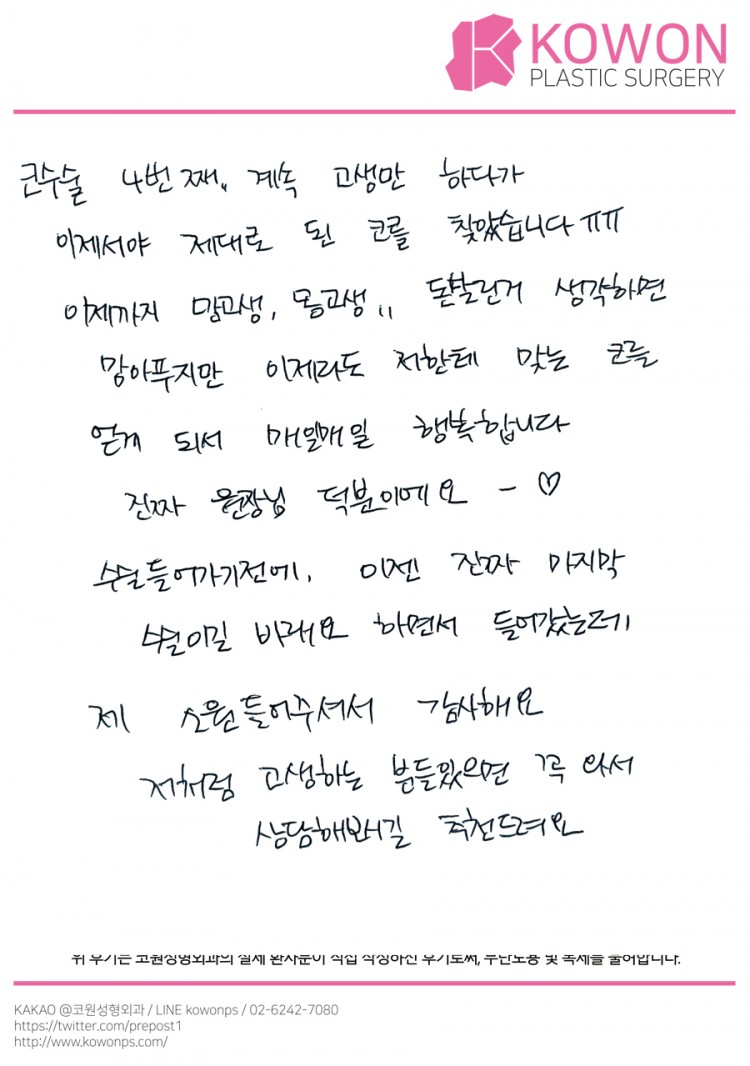 KOWON
PLASTIC SURGERY
코수술 4번째,, 계속 고생만 하다가
이제서야 제대로 된 코를 찾았습니다 ㅠㅠ
이제까지 맘고생, 몸고생,, 돈날린거 생각하면
맘아푸지만 이제라도 저한테 맞는 코를
얻게 되서 매일매일 행복합니다
진짜 원장님 덕분이에요 - ♡
수술들어가기전에, 이젠 진짜 마지막
수술이길 바래요 하면서 들어갔는데
제 소원들어주셔서 감사해요
저처럼 고생하는 분들있으면 꼭 와서
상담해보시길 추천드려요
위 후기는 코원성형외과의 실제 환자분이 직접 작성하신 후기로써, 무단도용 및 복제를 불허합니다.
KAKAO @코원성형외과 / LINE kowonps / 02-6242-7080
https://twitter.com/prepost1
http://www.kowonps.com/